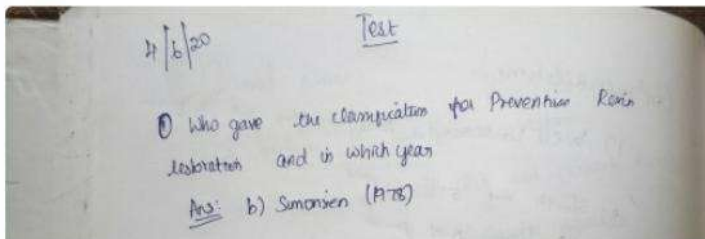 4/6/20
Test
① Who gave the classification for Preventive Resin
restoration and in which year
Ans: b) Simonsen (1978)